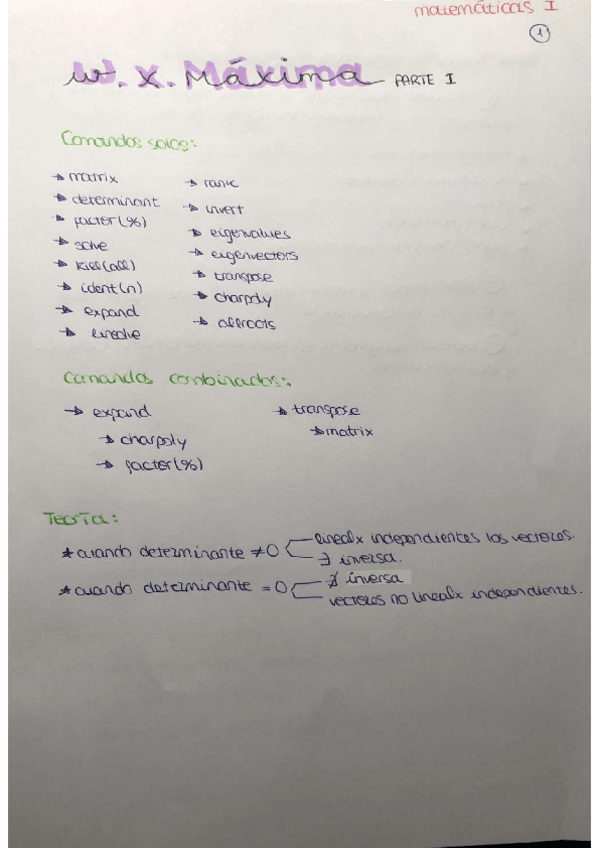 matemáticas I
1
W. X. Máxima PARTE I
Comandos solos:
→ matrix
→ determinant
→ factor(%)
→ solve
→ kill(all)
→ ident(n)
→ expand
→ linsolve
→ rank
→ invert
→ eigenvalues
→ eigenvectors
→ transpose
→ charpoly
→ allroots
Comandos combinados:
→ expand
→ charpoly
→ factor(%)
→ transpose
→ matrix
Teoría:
* cuando determinante ≠ 0 linealx independientes los vectores.
∃ inversa.
* cuando determinante = 0 ∄ inversa
vectores no linealx independientes.